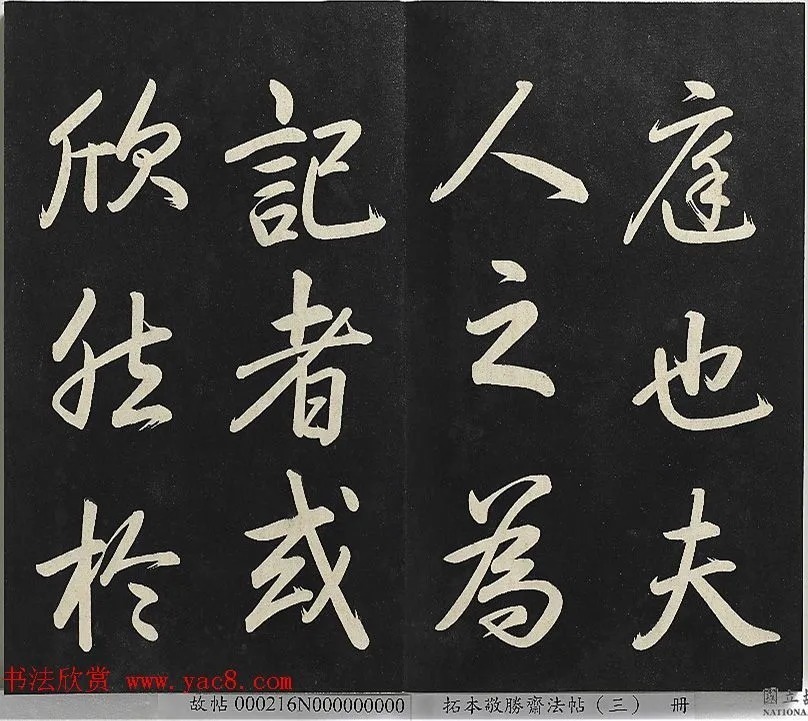 庭也夫
人之為
記者或
欣然於
书法欣赏 www.yac8.com
故帖 000216N000000000 拓本敬勝齋法帖（三） 冊
國立
NATIONA